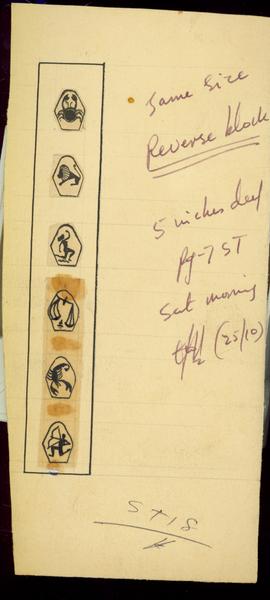 Same size
Reverse block
5 inches deep
Pg-7 ST
Sat morning
(25/10)
5 x 18